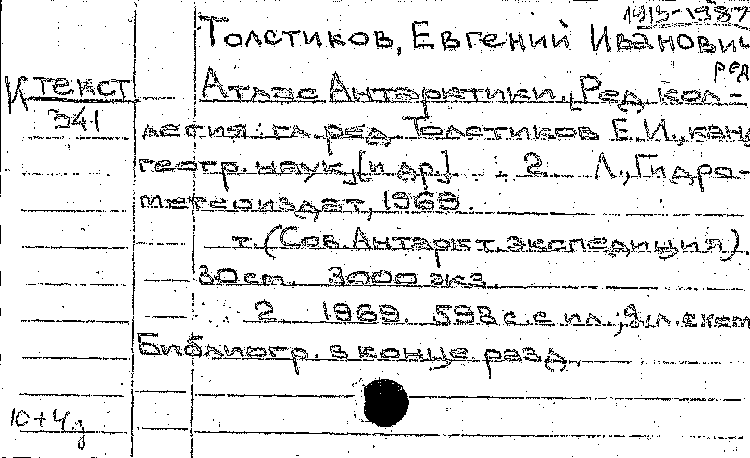 1913-1987
Толстиков, Евгений Иванович
ред
К текст
341
Атлас Антарктики. [Ред. кол-
легия: гл. ред. Толстиков Е.И., канд.
геогр. наук, [и др.] . : 2. Л., Гидро-
метеоиздат, 1969.
т. (Сов. Антаркт. экспедиция).
30 см. 3000 экз.
2. 1969. 598 с. с ил.; 9 л.
Библиогр. в конце разд.
10+4